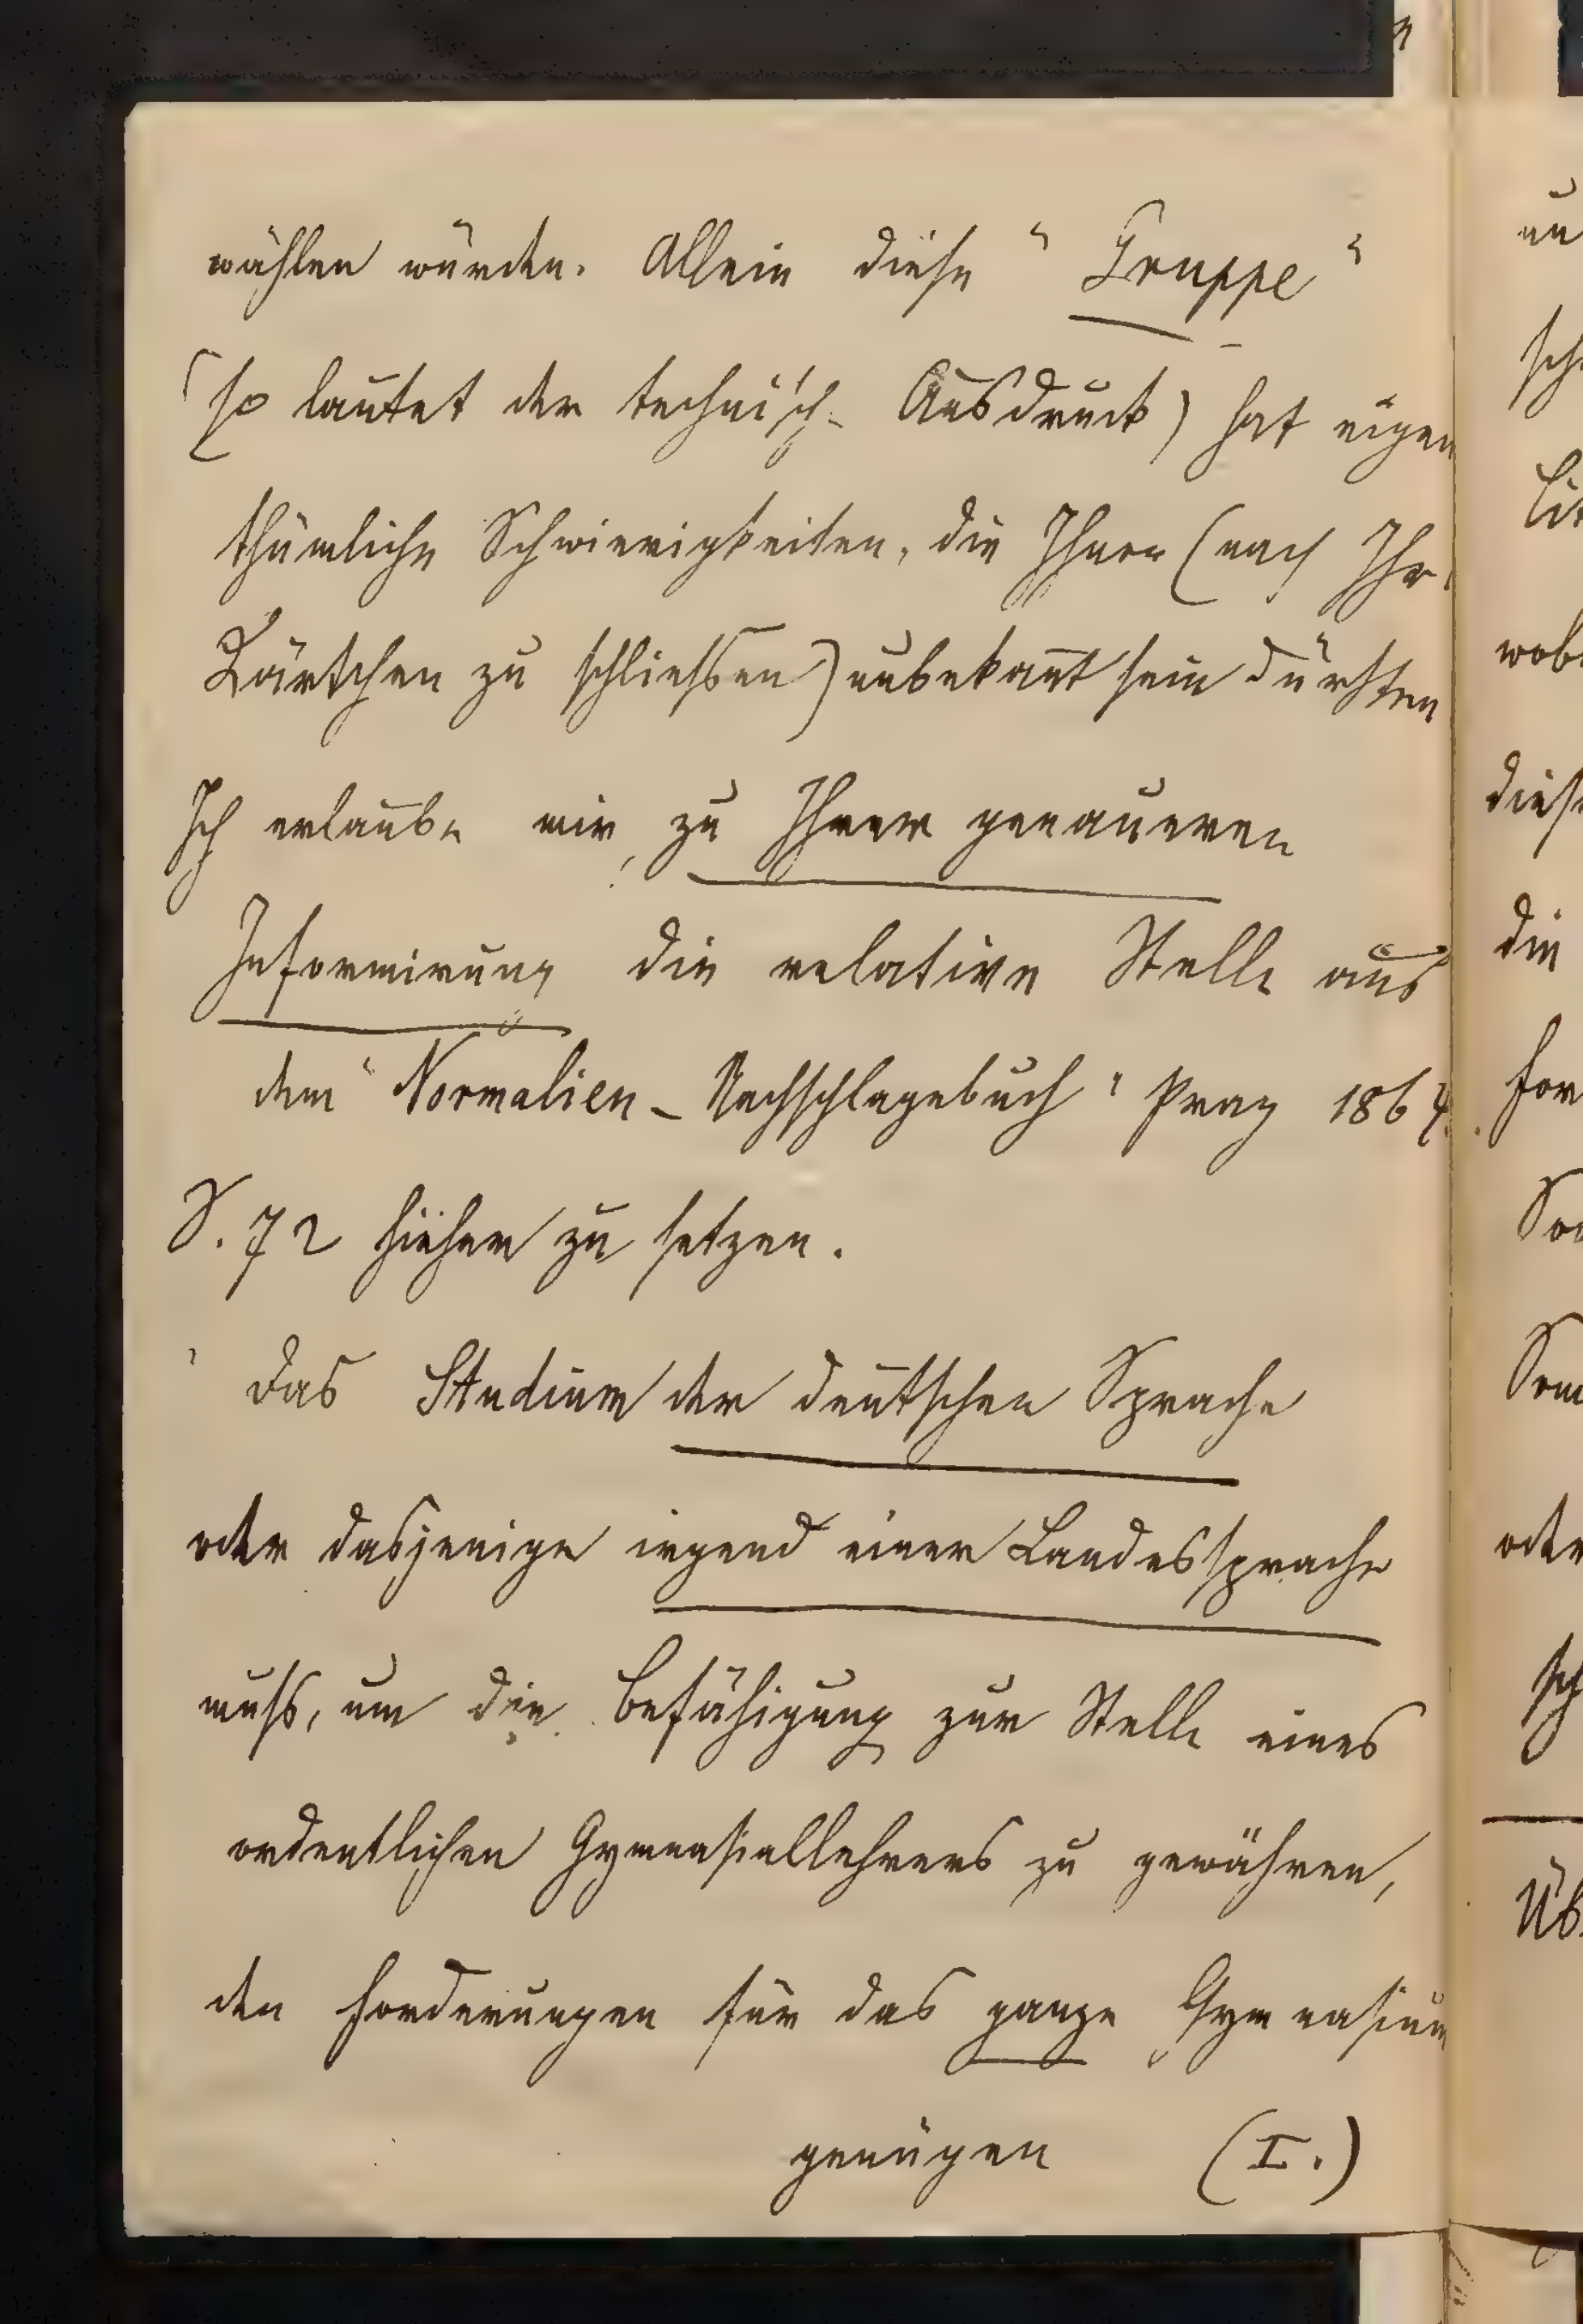 wählen würden. Allein diese "Gruppe"
(so lautet der technisch- Ausdruck) hat eigen
thümliche Schwierigkeiten, die Ihnen (nach Ihr.
Kärtchen zu schliessen) unbekannt sein dürften
Ich erlaube mir, zu Ihrer genaueren
Informirung die relative Stelle aus
dem "Normalien-Nachschlagebuch" Prag 1864.
S. 72 hieher zu setzen.
"Das Studium der deutschen Sprache
oder dasjenige irgend einer Landessprache
muss, um die Befähigung zur Stelle eines
ordentlichen Gymnasiallehrers zu gewähren,
den Forderungen für das ganze Gymnasium
genügen (I.)